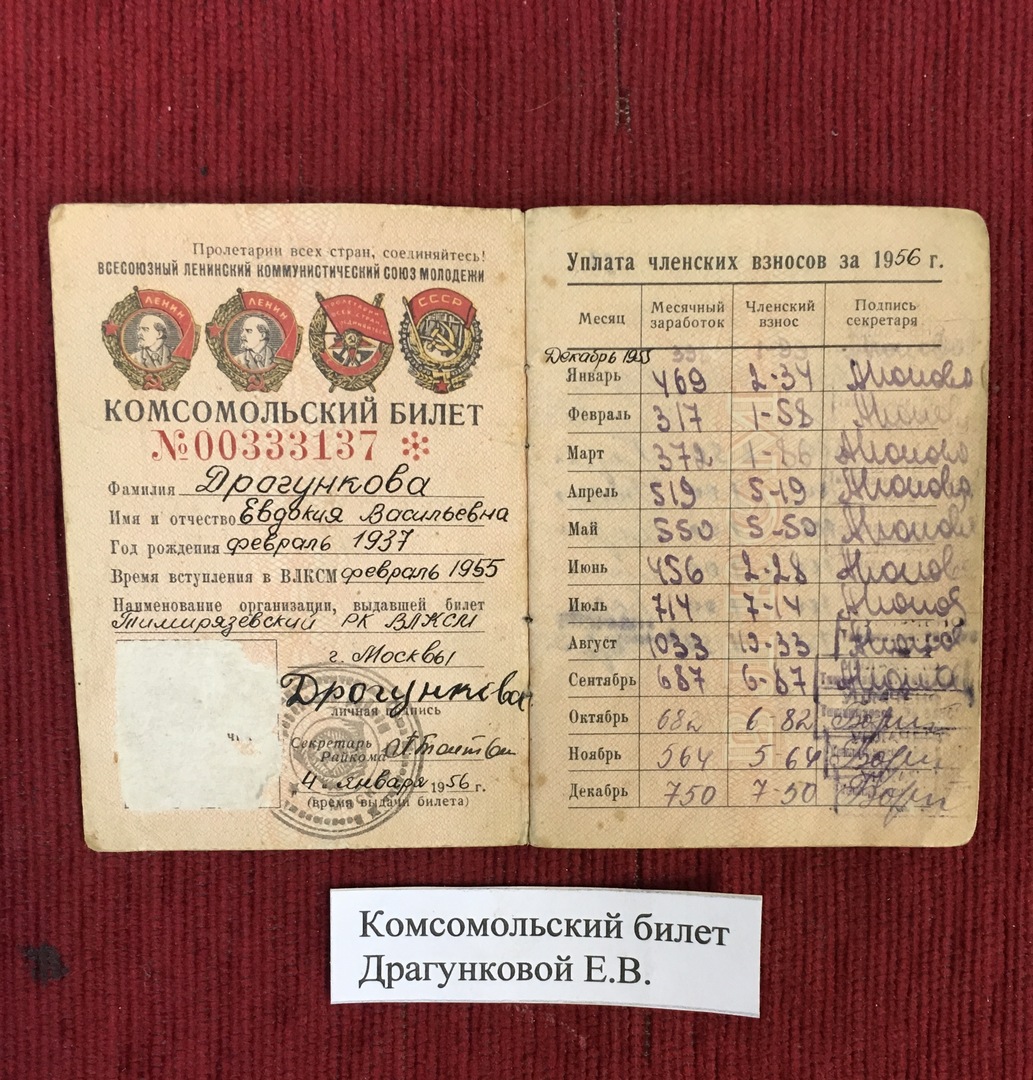 Пролетарии всех стран, соединяйтесь!
ВСЕСОЮЗНЫЙ ЛЕНИНСКИЙ КОММУНИСТИЧЕСКИЙ СОЮЗ МОЛОДЕЖИ
ЛЕНИН ЛЕНИН СССР
КОМСОМОЛЬСКИЙ БИЛЕТ
№00333137
Фамилия Драгункова
Имя и отчество Евдокия Васильевна
Год рождения февраль 1937
Время вступления в ВЛКСМ февраль 1955
Наименование организации, выдавшей билет
Тимирязевский РК ВЛКСМ
г. Москвы
Драгункова
личная подпись
Секретарь
Райкома
4 января 1956 г.
(время выдачи билета)
Уплата членских взносов за 1956 г.
Месяц Месячный заработок Членский взнос Подпись секретаря
Декабрь 1955
Январь 469 2-34
Февраль 317 1-58
Март 372 1-86
Апрель 519 5-19
Май 550 5-50
Июнь 456 2-28
Июль 714 7-14
Август 1033 10-33
Сентябрь 687 6-87
Октябрь 682 6-82
Ноябрь 564 5-64
Декабрь 750 7-50
Комсомольский билет
Драгунковой Е.В.